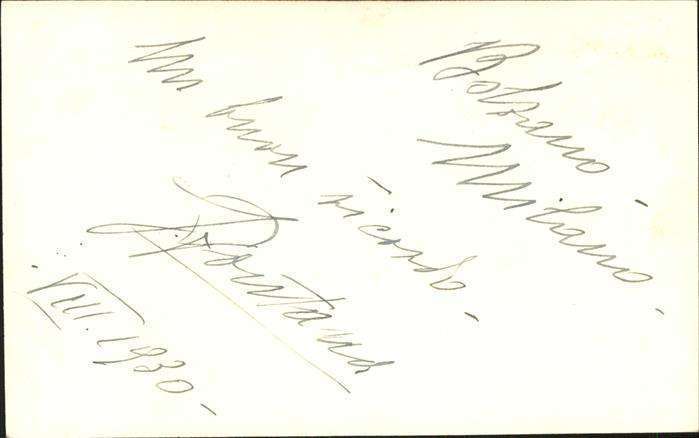 Bolzano -
Milano -
Un buon ricordo -
Fontana
VIII. 1930 -